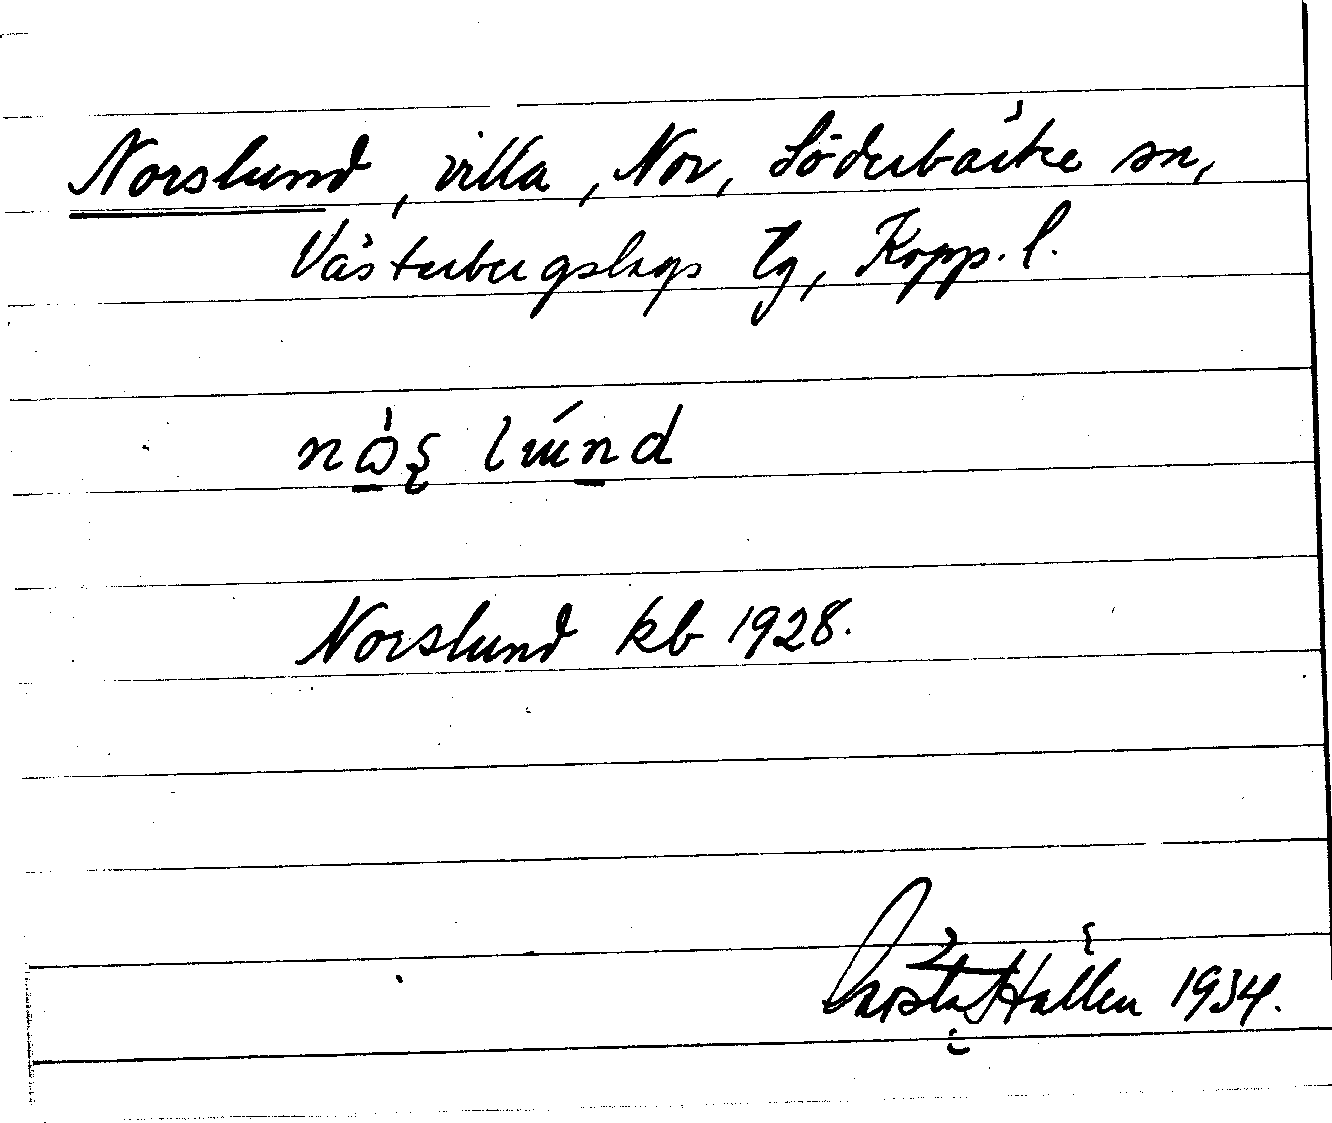 Norslund, villa, Nor, Söderbärke sn,
Västerbergslags tg, Kopp. l.
Norslund kb 1928.
Gösta Hallén 1934.